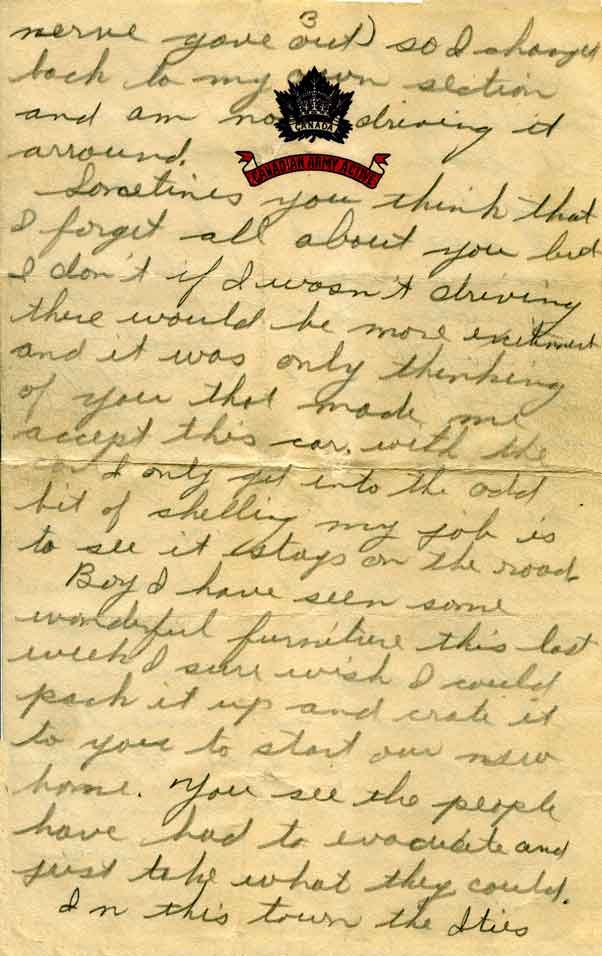 3
nerve gave out) so I changed
back to my own section
and am now driving it
arround.
CANADA
CANADIAN ARMY ACTIVE
Sometimes you think that
I forget all about you but
I don't if I wasn't driving
there would be more excitment
and it was only thinking
of you that made me
accept this car. with the
car I only get into the odd
bit of shelling my job is
to see it stays on the road
Boy I have seen some
wonderful furniture this last
week I sure wish I could
pack it up and crate it
to you to start our new
home. You see the people
have had to evacuate and
just take what they could.
In this town the Ities